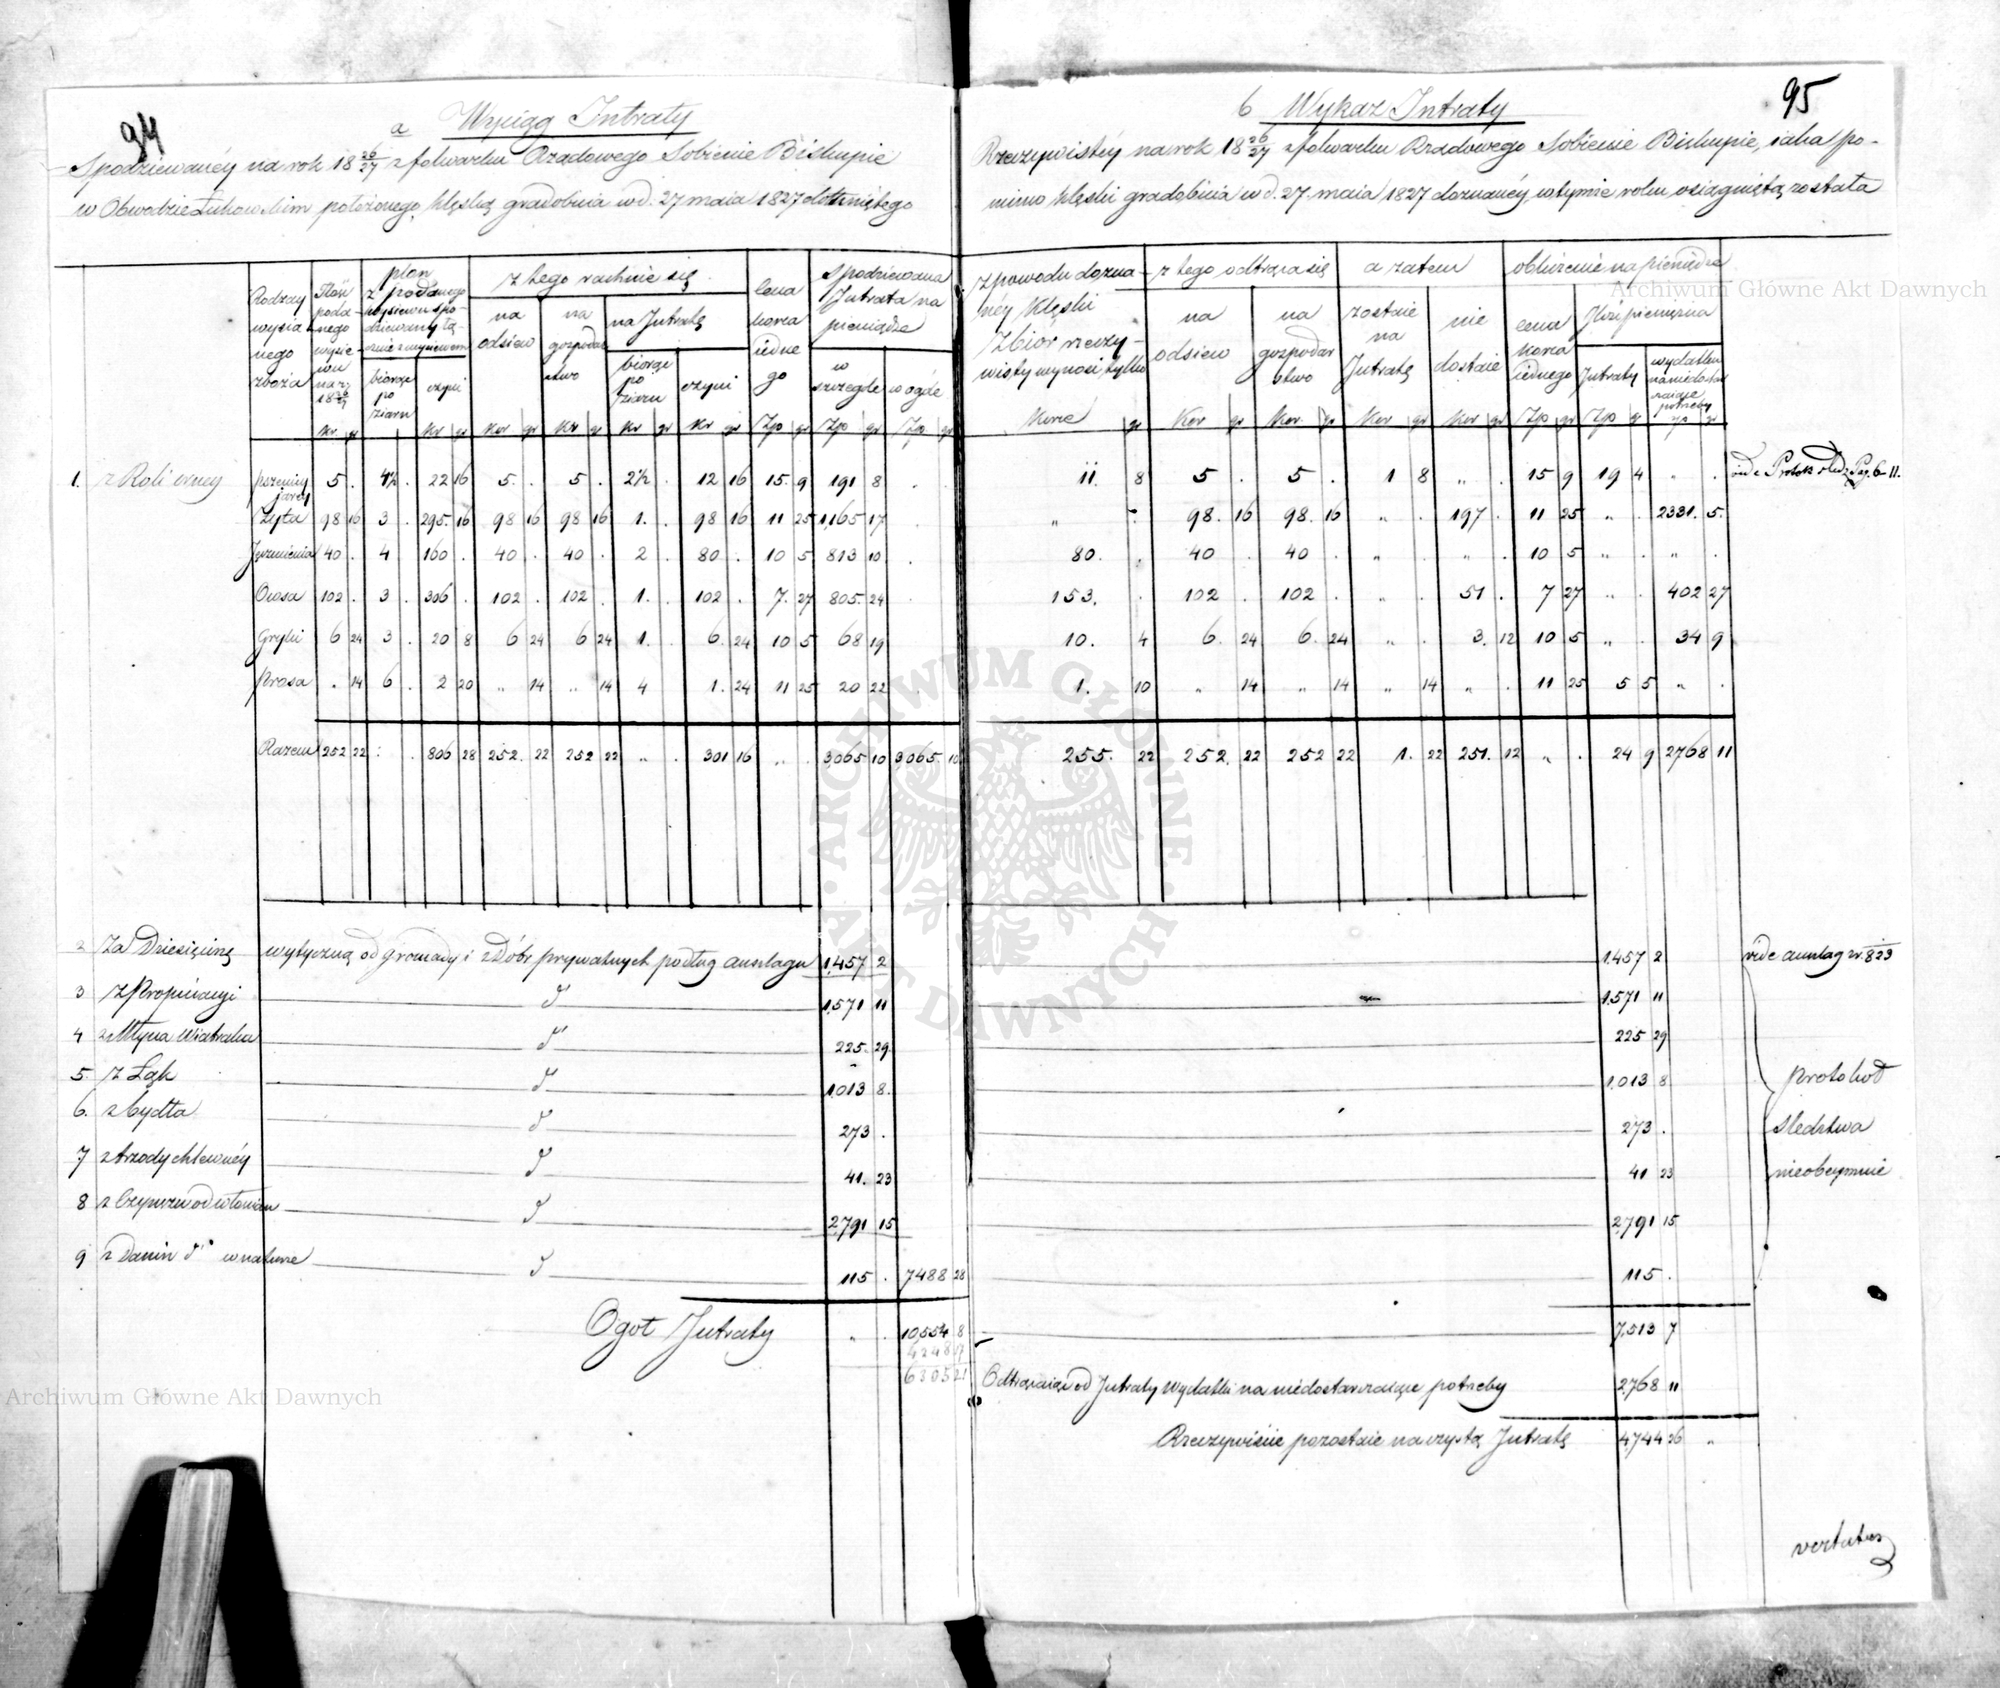 94
a Wyciąg Intraty
Spodziewanéy na rok 18 26/27 z folwarku Rządowego Sobienie Biskupie
w Obwodzie Łukowskim położonego, klęską gradobicia w d. 27 maia 1827 dotkniętego
Rodzay wysianego zboża
Ilość podanego wysiewu na r. 18 26/27
plon z podanego wysiewu spodziewany łącznie z wysiewem
z tego rachuie się
cena korca iednego
Spodziewana Intrata na pieniądze
na odsiew
na gospodarstwo
na Intratę
biorąc po ziarnu
czyni
biorąc po ziarnu
czyni
w szczególe
w ogóle
kr gr kr gr kor gr kr gr kr gr kr gr Zp gr Zp gr Zp gr
1. z Roli orney
pszenicy jarey 5 . 4½ . 22 16 5 . 5 . 2½ . 12 16 15 9 191 8
Żyta 98 16 3 . 295 16 98 16 98 16 1 . 98 16 11 25 1,165 17
Jęczmienia 40 . 4 160 . 40 . 40 . 2 80 . 10 5 813 10
Owsa 102 . 3 . 306 . 102 . 102 . 1 . 102 . 7 27 805 24
Gryki 6 24 3 . 20 8 6 24 6 24 1 . 6 24 10 5 68 19
Prosa „ 14 6 . 2 20 „ 14 „ 14 4 1 24 11 25 20 22
Razem 252 22 : . 806 28 252 22 252 22 „ . 301 16 „ . 3,065 10 3,065 10
2 Za Dziesięcinę wytyczną od gromady i z Dóbr prywatnych podług anszlagu 1,457 2
3 z Propinacyi d° 1,571 11
4 z Młyna Wiatraka d° 225 29
5 z Łąk d° 1,013 8
6. z bydła d° 273 .
7 z trzody chlewnéy d° 41 23
8 z Czynszu od włościan d° 2,791 15
9 z Danin d° w naturze d° 115 . 7488 28
Ogół Intraty „ . 10,554 8
4248 17
6305 21
95
b Wykaz Intraty
Rzeczywistéy na rok 18 26/27 z folwarku Rządowego Sobienie Biskupie, iaka po-
mimo klęski gradobicia w d. 27. maia 1827 doznanéy w tymże roku osiągniętą została
z powodu doznanéy klęski zbiór rzeczywisty wynosi tylko
z tego odtrąca się
a zatem
obliczenie na pieniądze
na odsiew
na gospodarstwo
zostaie na Intratę
nie dostaie
cena korca iednego
Ilość pieniężna
Intraty
wydatku na niedostarczaiące potrzeby
Korce gr Kor gr Kor gr Kor gr Kor gr Zp gr Zp gr Zp gr
11 8 5 . 5 . 1 8 „ . 15 9 19 4 „ . vide Protok śledz Pag. 6-11.
„ - 98 16 98 16 „ . 197 . 11 25 „ . 2331 5
80 . 40 . 40 . „ . „ . 10 5 „ . „ .
153 . 102 . 102 . „ . 51 . 7 27 „ . 402 27
10 4 6 24 6 24 „ . 3 12 10 5 „ . 34 9
1 10 „ 14 „ 14 „ 14 „ . 11 25 5 5 „ .
255 22 252 22 252 22 1 22 251 12 „ . 24 9 2768 11
1,457 2 vide anszlag z r. 823
1,571 11
225 29
1,013 8 Protokół
273 . śledztwa
41 23 nieobeymuie
2,791 15
115 .
7,513 7
Odtrącaiąc od Intraty wydatki na niedostarczaiące potrzeby 2,768 11
Rzeczywiście pozostaie na czystą Intratę 4,744 26 „
vertatur
Archiwum Główne Akt Dawnych
Archiwum Główne Akt Dawnych
ARCHIWUM GŁÓWNE AKT DAWNYCH